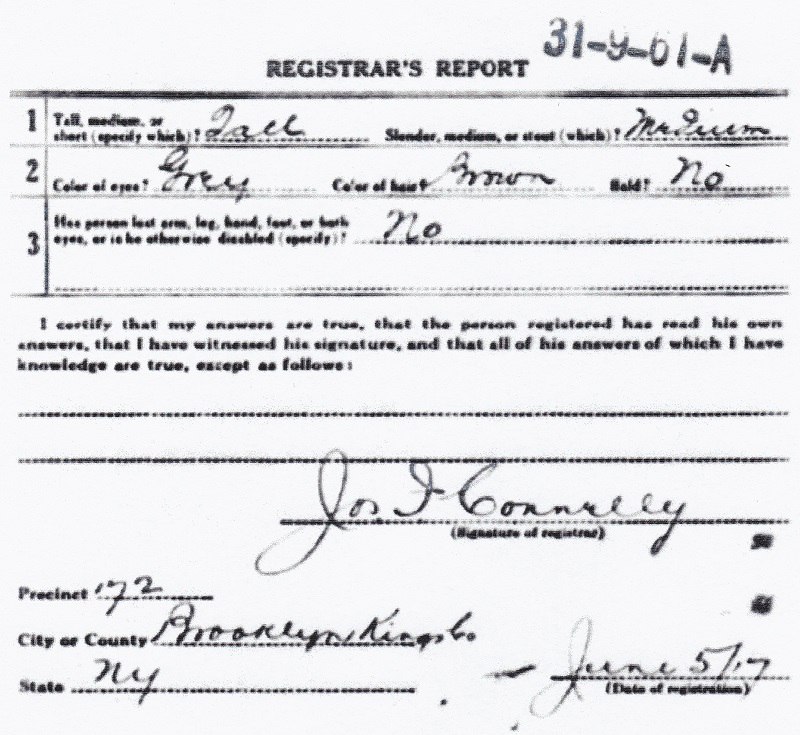 REGISTRAR'S REPORT 31-9-61-A
1 Tall, medium, or short (specify which)? Tall Slender, medium, or stout (which)? Medium
2 Color of eyes? Grey Color of hair? Brown Bald? No
3 Has person lost arm, leg, hand, foot, or both
eyes, or is he otherwise disabled (specify)? No
I certify that my answers are true, that the person registered has read his own
answers, that I have witnessed his signature, and that all of his answers of which I have
knowledge are true, except as follows:
Jos F Connelly
(Signature of registrar)
Precinct 172
City or County Brooklyn Kings Co
State NY June 5/17
(Date of registration)